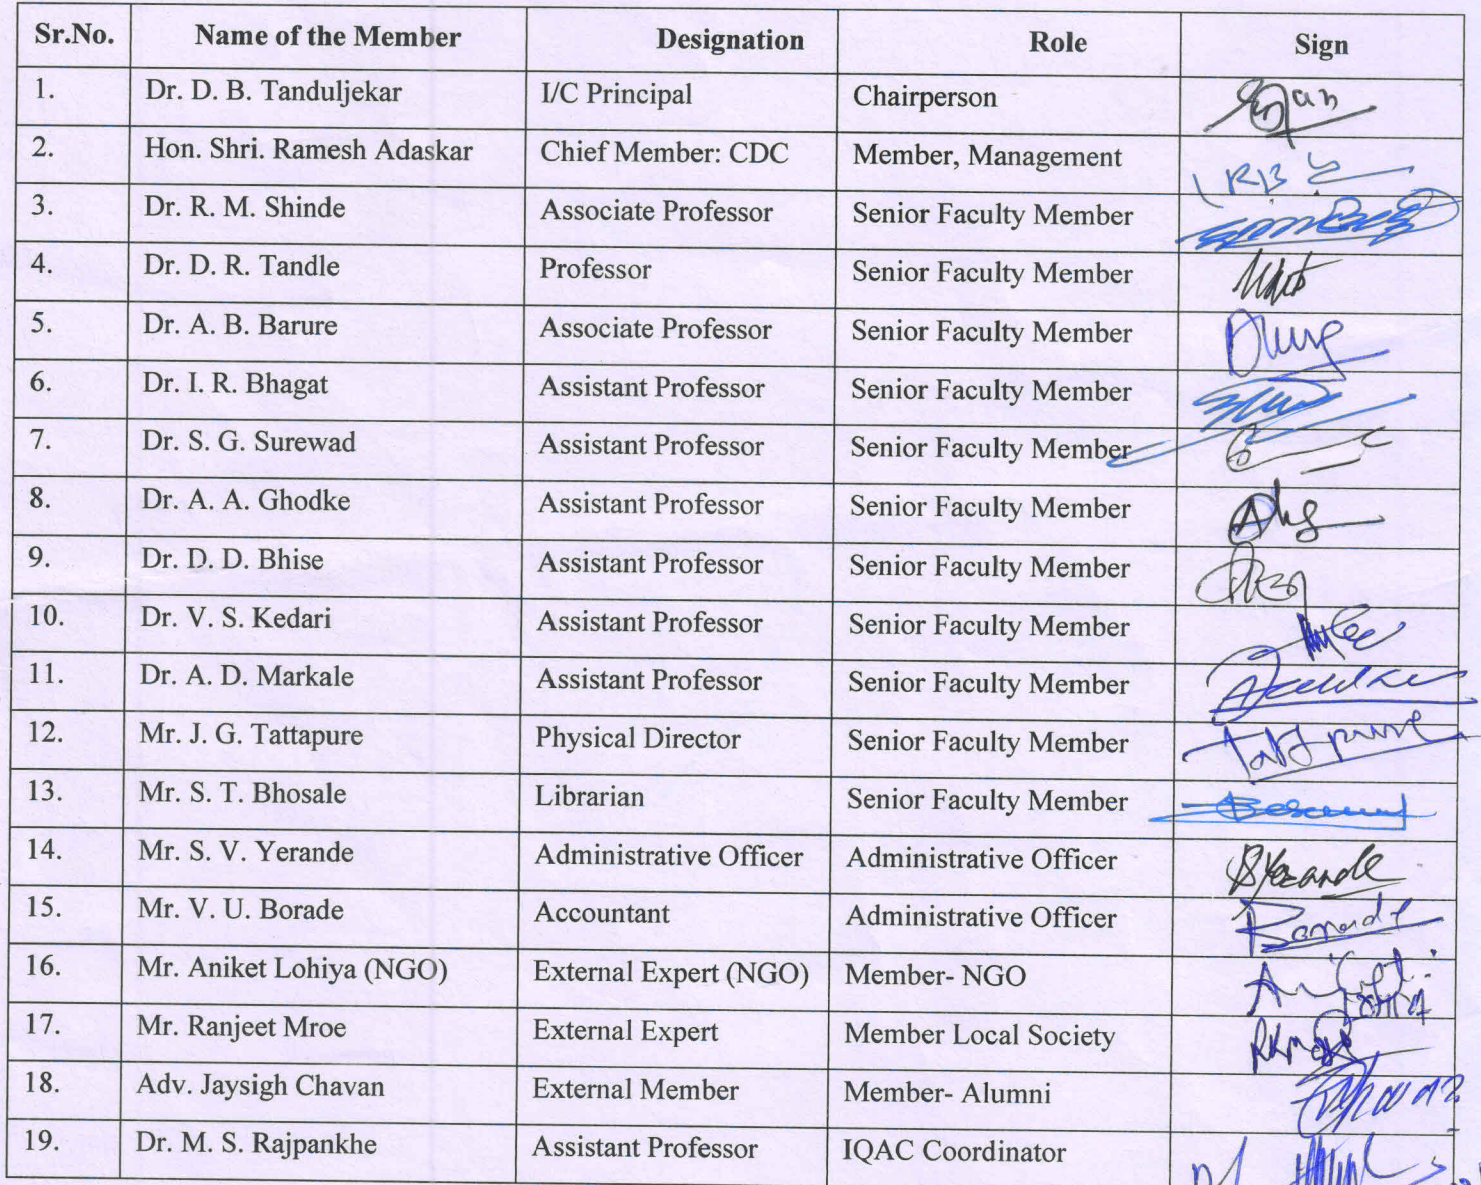 Sr.No. Name of the Member Designation Role Sign
1. Dr. D. B. Tanduljekar I/C Principal Chairperson
2. Hon. Shri. Ramesh Adaskar Chief Member: CDC Member, Management
3. Dr. R. M. Shinde Associate Professor Senior Faculty Member
4. Dr. D. R. Tandle Professor Senior Faculty Member
5. Dr. A. B. Barure Associate Professor Senior Faculty Member
6. Dr. I. R. Bhagat Assistant Professor Senior Faculty Member
7. Dr. S. G. Surewad Assistant Professor Senior Faculty Member
8. Dr. A. A. Ghodke Assistant Professor Senior Faculty Member
9. Dr. D. D. Bhise Assistant Professor Senior Faculty Member
10. Dr. V. S. Kedari Assistant Professor Senior Faculty Member
11. Dr. A. D. Markale Assistant Professor Senior Faculty Member
12. Mr. J. G. Tattapure Physical Director Senior Faculty Member
13. Mr. S. T. Bhosale Librarian Senior Faculty Member
14. Mr. S. V. Yerande Administrative Officer Administrative Officer
15. Mr. V. U. Borade Accountant Administrative Officer
16. Mr. Aniket Lohiya (NGO) External Expert (NGO) Member- NGO
17. Mr. Ranjeet Mroe External Expert Member Local Society
18. Adv. Jaysigh Chavan External Member Member- Alumni
19. Dr. M. S. Rajpankhe Assistant Professor IQAC Coordinator